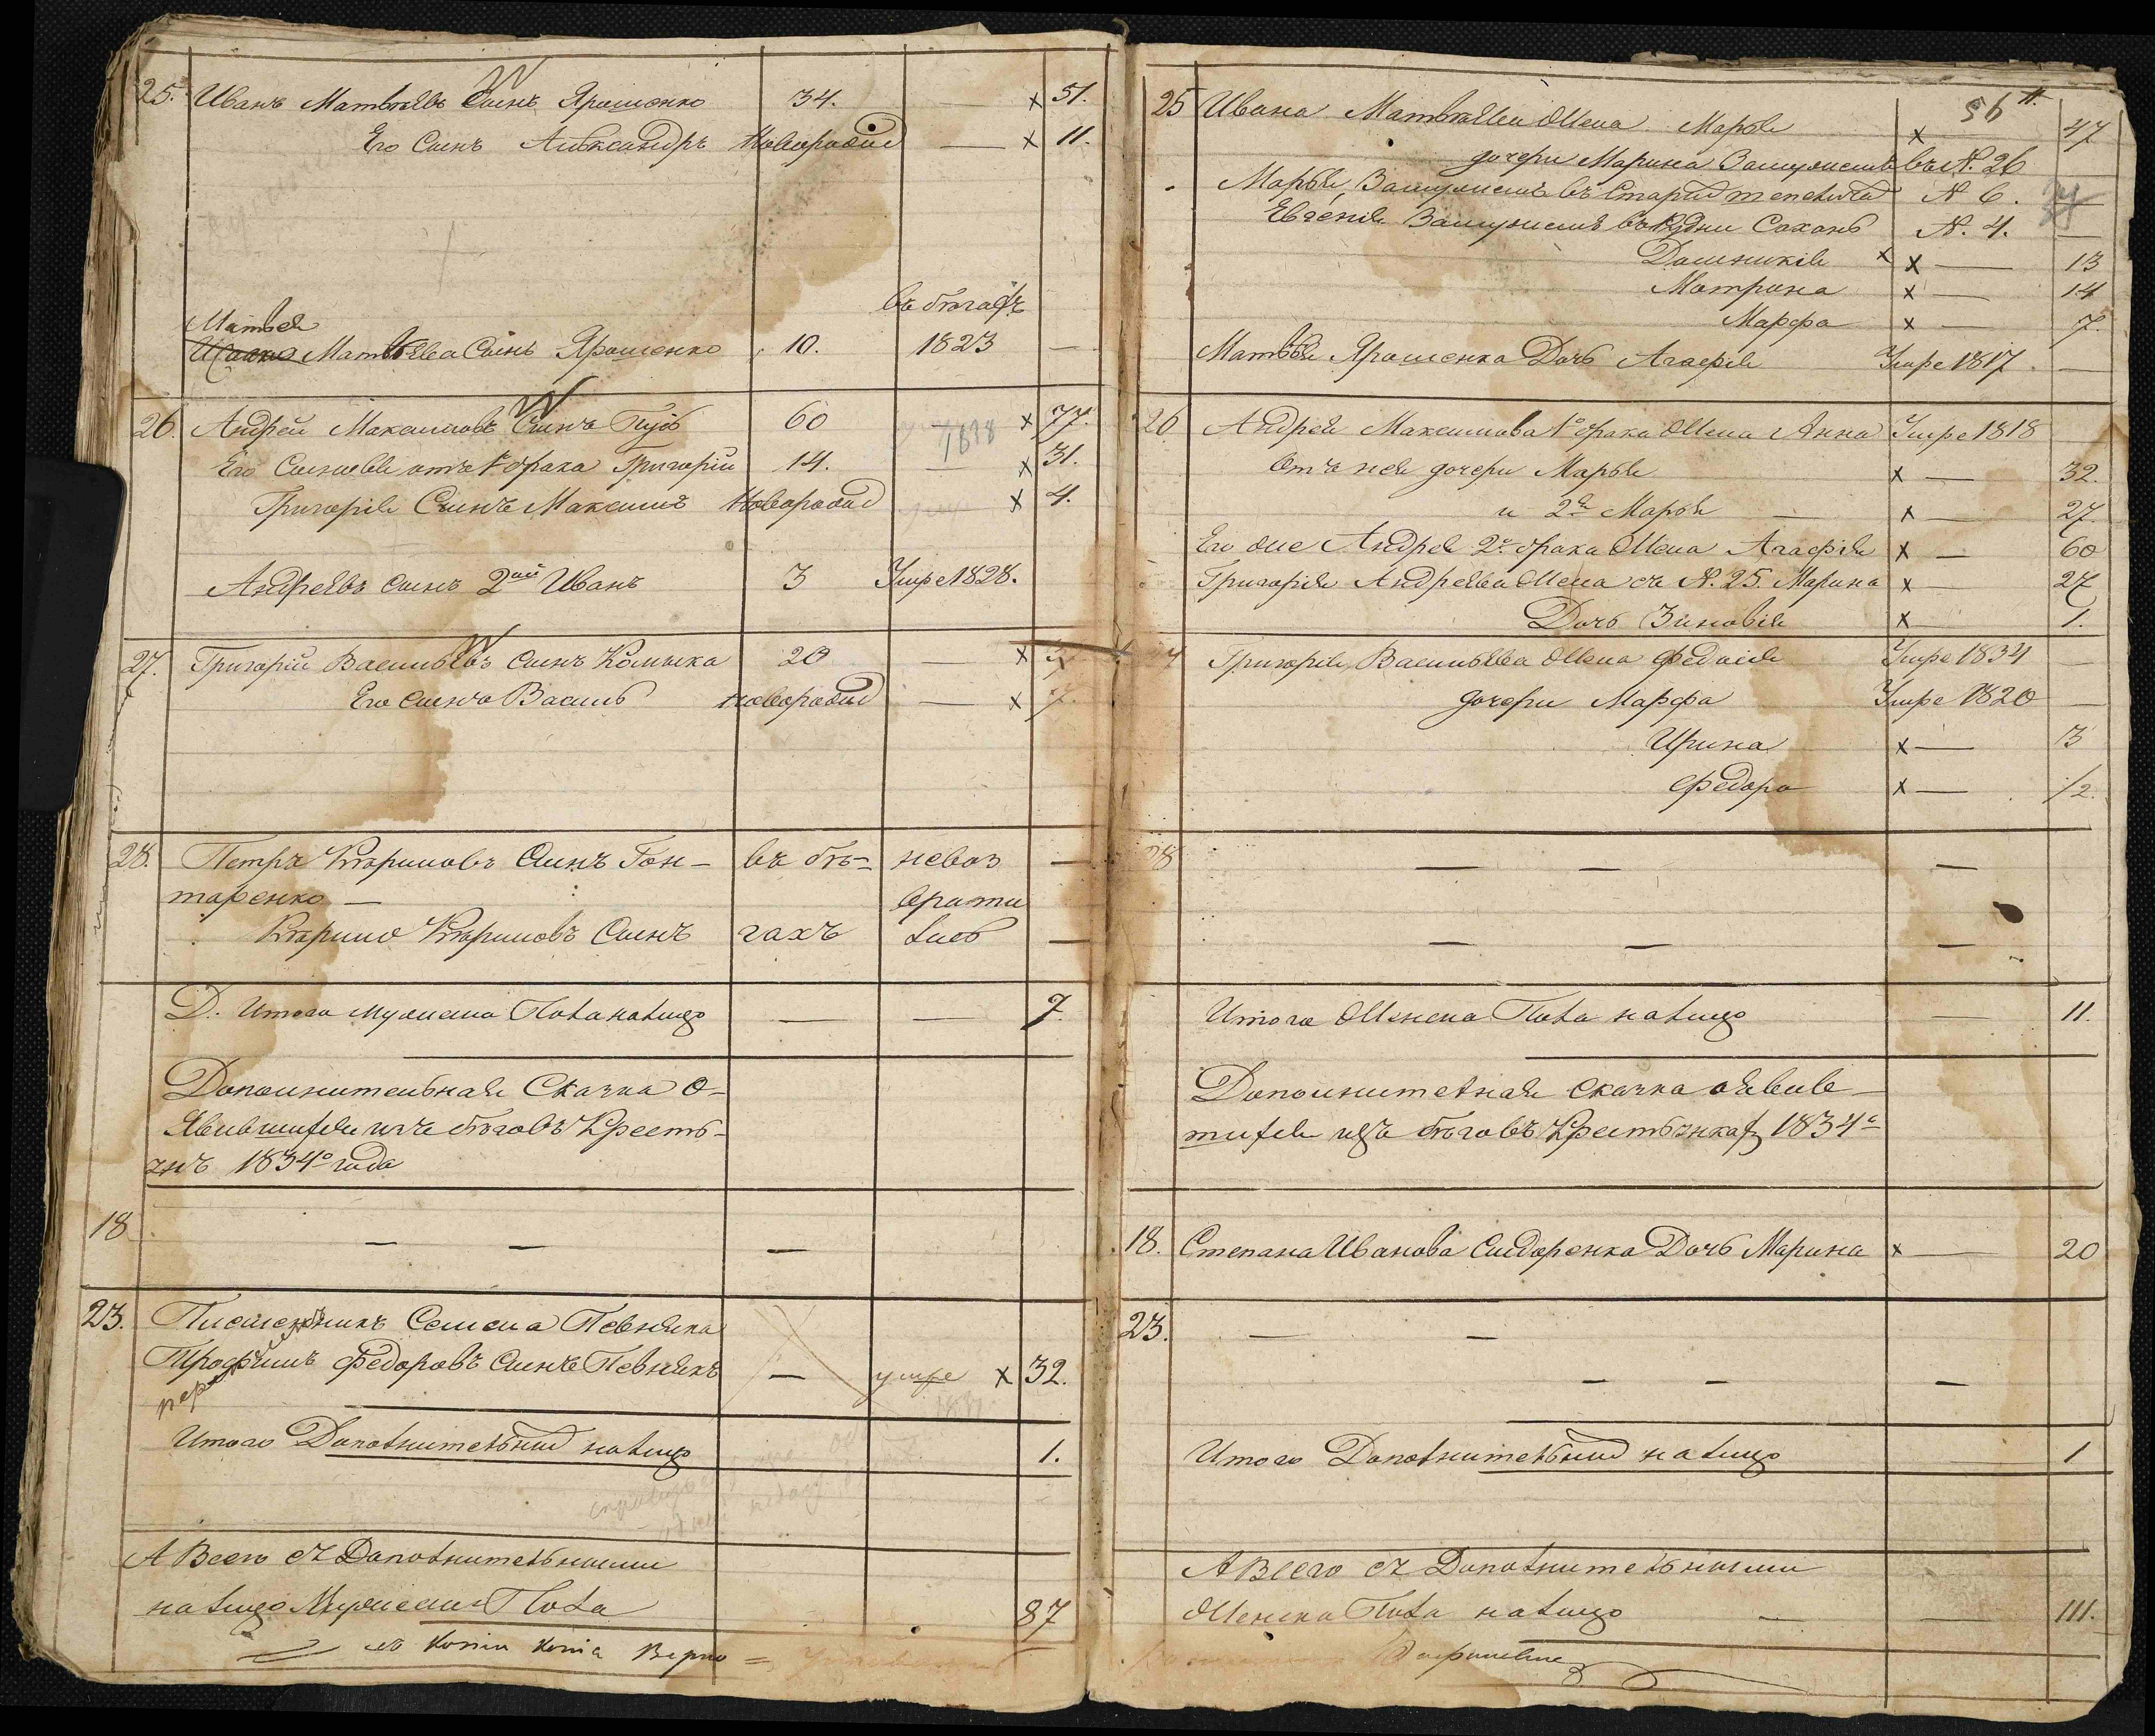 25. Иванъ Матвѣевъ Сынъ Ярошенко 34. — х 51.
Его Сынъ Александръ Новорожд — х 11.
въ бѣгахъ
Матвей
Матвѣева Сынъ Ярошенко 10. 1823 —
26. Андрей Максимовъ Сынъ 60 1818 х 77.
Его Сыновья отъ 1го брака Григорій 14. — х 31.
Григорія Сынъ Максимъ Новорожд х 4.
Андреевъ сынъ 2ой Иванъ 3 Умре 1828.
27. Григорій Васильевъ сынъ Колѣнка 20 — х
Его сынъ Василь новорожд — х 7.
28. Петръ Кириловъ Сынъ Гон- въ бѣ- невоз —
таренко — врати
Кирило Кириловъ Сынъ гахъ лись —
Д. Итого мужеска Пола налицо — — 7.
Дополнительная Сказка о-
Явившихся изъ бѣговъ Кресть-
янъ 1834о года
18 — — —
23. Племенникъ Семена Певняка
Трофимъ Федоровъ Сынъ Певнякъ — умре х 32.
Итого Дополнительной налицо 1.
А Всего съ Дополнительными
налицо Мужеска Пола 87
Копіи Копія Верно =
56 11.
25 Ивана Матвѣева Жена Марья х 47
дочери Марина Замужемъ въ N. 26
Марья Замужемъ въ N 6. —
Евгенія Замужемъ въ Рудни Сахонь N. 4. —
Домникія х х — 13
Матрина х — 14
Марфа х — 7.
Матвѣя Ярошенка Дочь Агафія Умре 1817 —
26 Андрея Максимова 1о брака Жена Анна Умре 1818
Отъ нея дочери Марья х — 32.
и 2я Марья — х — 27.
Его же Андрея 2о брака Жена Агафія х — 60
Григорія Андреева Жена съ N. 25. Марина х 27
Дочь Зиновія х 1.
Григорія Васильева Жена Федосія Умре 1834 —
дочери Марфа Умре 1820 —
Ирина х — 3
Федора х — 1/2.
28 — — —
— — —
Итого Женска Пола налицо — 11.
Дополнителная сказка оявив-
шихся изъ бѣговъ Крестьянкахъ 1834о
18. Степана Иванова Сидоренка Дочь Марина х — 20
23. — —
— — —
Итого Дополнительной налицо 1
А Всего съ Дополнительными
Женска Пола налицо — — 111.